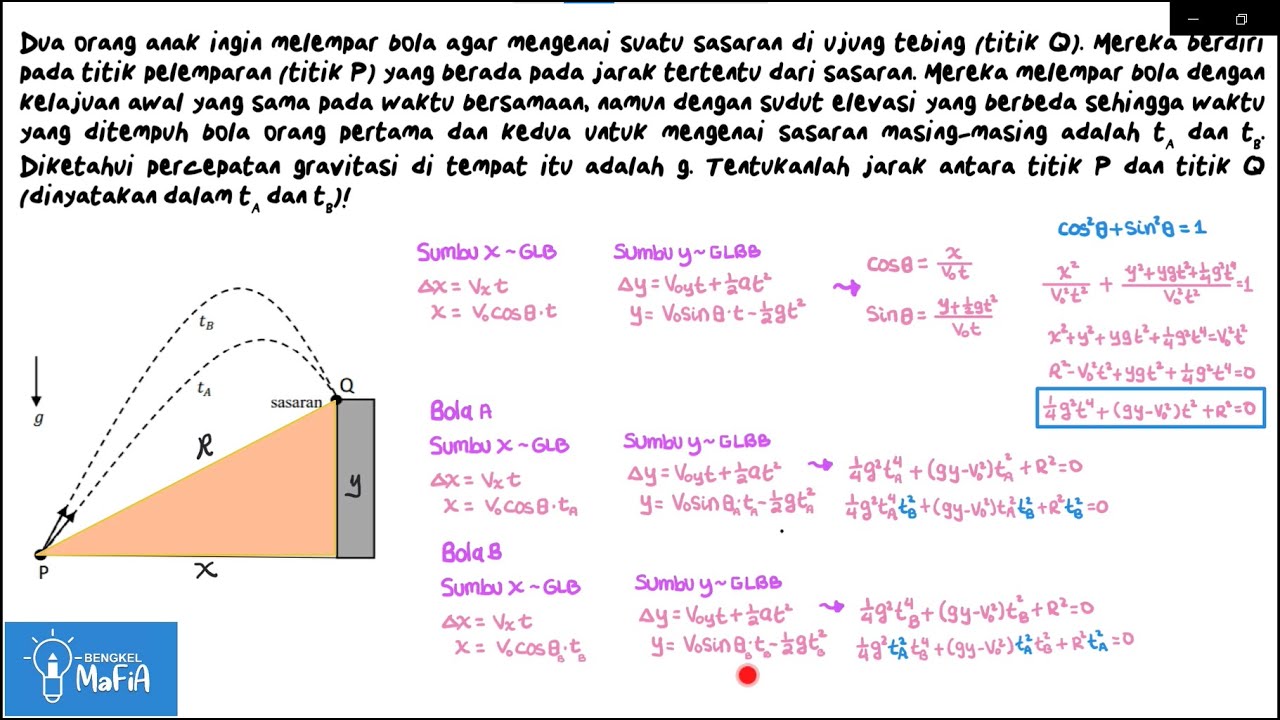 Dua orang anak ingin melempar bola agar mengenai suatu sasaran di ujung tebing (titik Q). Mereka berdiri
pada titik pelemparan (titik P) yang berada pada jarak tertentu dari sasaran. Mereka melempar bola dengan
kelajuan awal yang sama pada waktu bersamaan, namun dengan sudut elevasi yang berbeda sehingga waktu
yang ditempuh bola orang pertama dan kedua untuk mengenai sasaran masing-masing adalah t_A dan t_B.
Diketahui percepatan gravitasi di tempat itu adalah g. Tentukanlah jarak antara titik P dan titik Q
(dinyatakan dalam t_A dan t_B)!
g
t_B
t_A
sasaran
Q
R
y
P
x
Sumbu x ~ GLB
Δx = Vx t
x = V₀cosθ·t
Sumbu y ~ GLBB
Δy = V₀y t + ½at²
y = V₀sinθ·t - ½gt²
cosθ = x / V₀t
Sinθ = y + ½gt² / V₀t
cos²θ + sin²θ = 1
x² / V₀²t² + y² + ygt² + ¼g²t⁴ / V₀²t² = 1
x² + y² + ygt² + ¼g²t⁴ = V₀²t²
R² - V₀²t² + ygt² + ¼g²t⁴ = 0
¼g²t⁴ + (gy - V₀²)t² + R² = 0
Bola A
Sumbu x ~ GLB
Δx = Vx t
x = V₀cosθ·t_A
Sumbu y ~ GLBB
Δy = V₀y t + ½at²
y = V₀sinθ_A·t_A - ½gt_A²
¼g²t_A⁴ + (gy - V₀²)t_A² + R² = 0
¼g²t_A⁴t_B² + (gy - V₀²)t_A²t_B² + R²t_B² = 0
Bola B
Sumbu x ~ GLB
Δx = Vx t
x = V₀cosθ_B·t_B
Sumbu y ~ GLBB
Δy = V₀y t + ½at²
y = V₀sinθ_B·t_B - ½gt_B²
¼g²t_B⁴ + (gy - V₀²)t_B² + R² = 0
¼g²t_A²t_B⁴ + (gy - V₀²)t_A²t_B² + R²t_A² = 0
BENGKEL
MaFiA